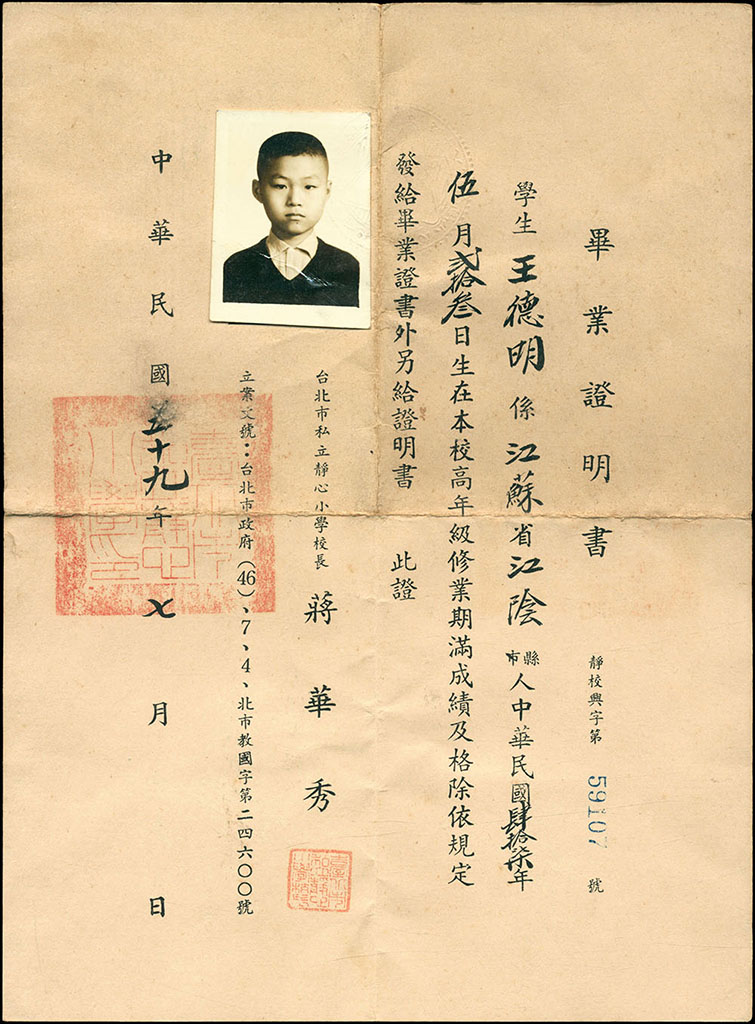 畢業證明書
靜校興字第59107號
學生王德明係江蘇省江陰縣市人中華民國肆拾柒年
伍月貳拾叁日生在本校高年級修業期滿成績及格除依規定
發給畢業證書外另給證明書　此證
台北市私立靜心小學校長蔣華秀
立案文號：台北市政府（46）、7、4、北市教國字第二四六〇〇號
中華民國五十九年七月　日